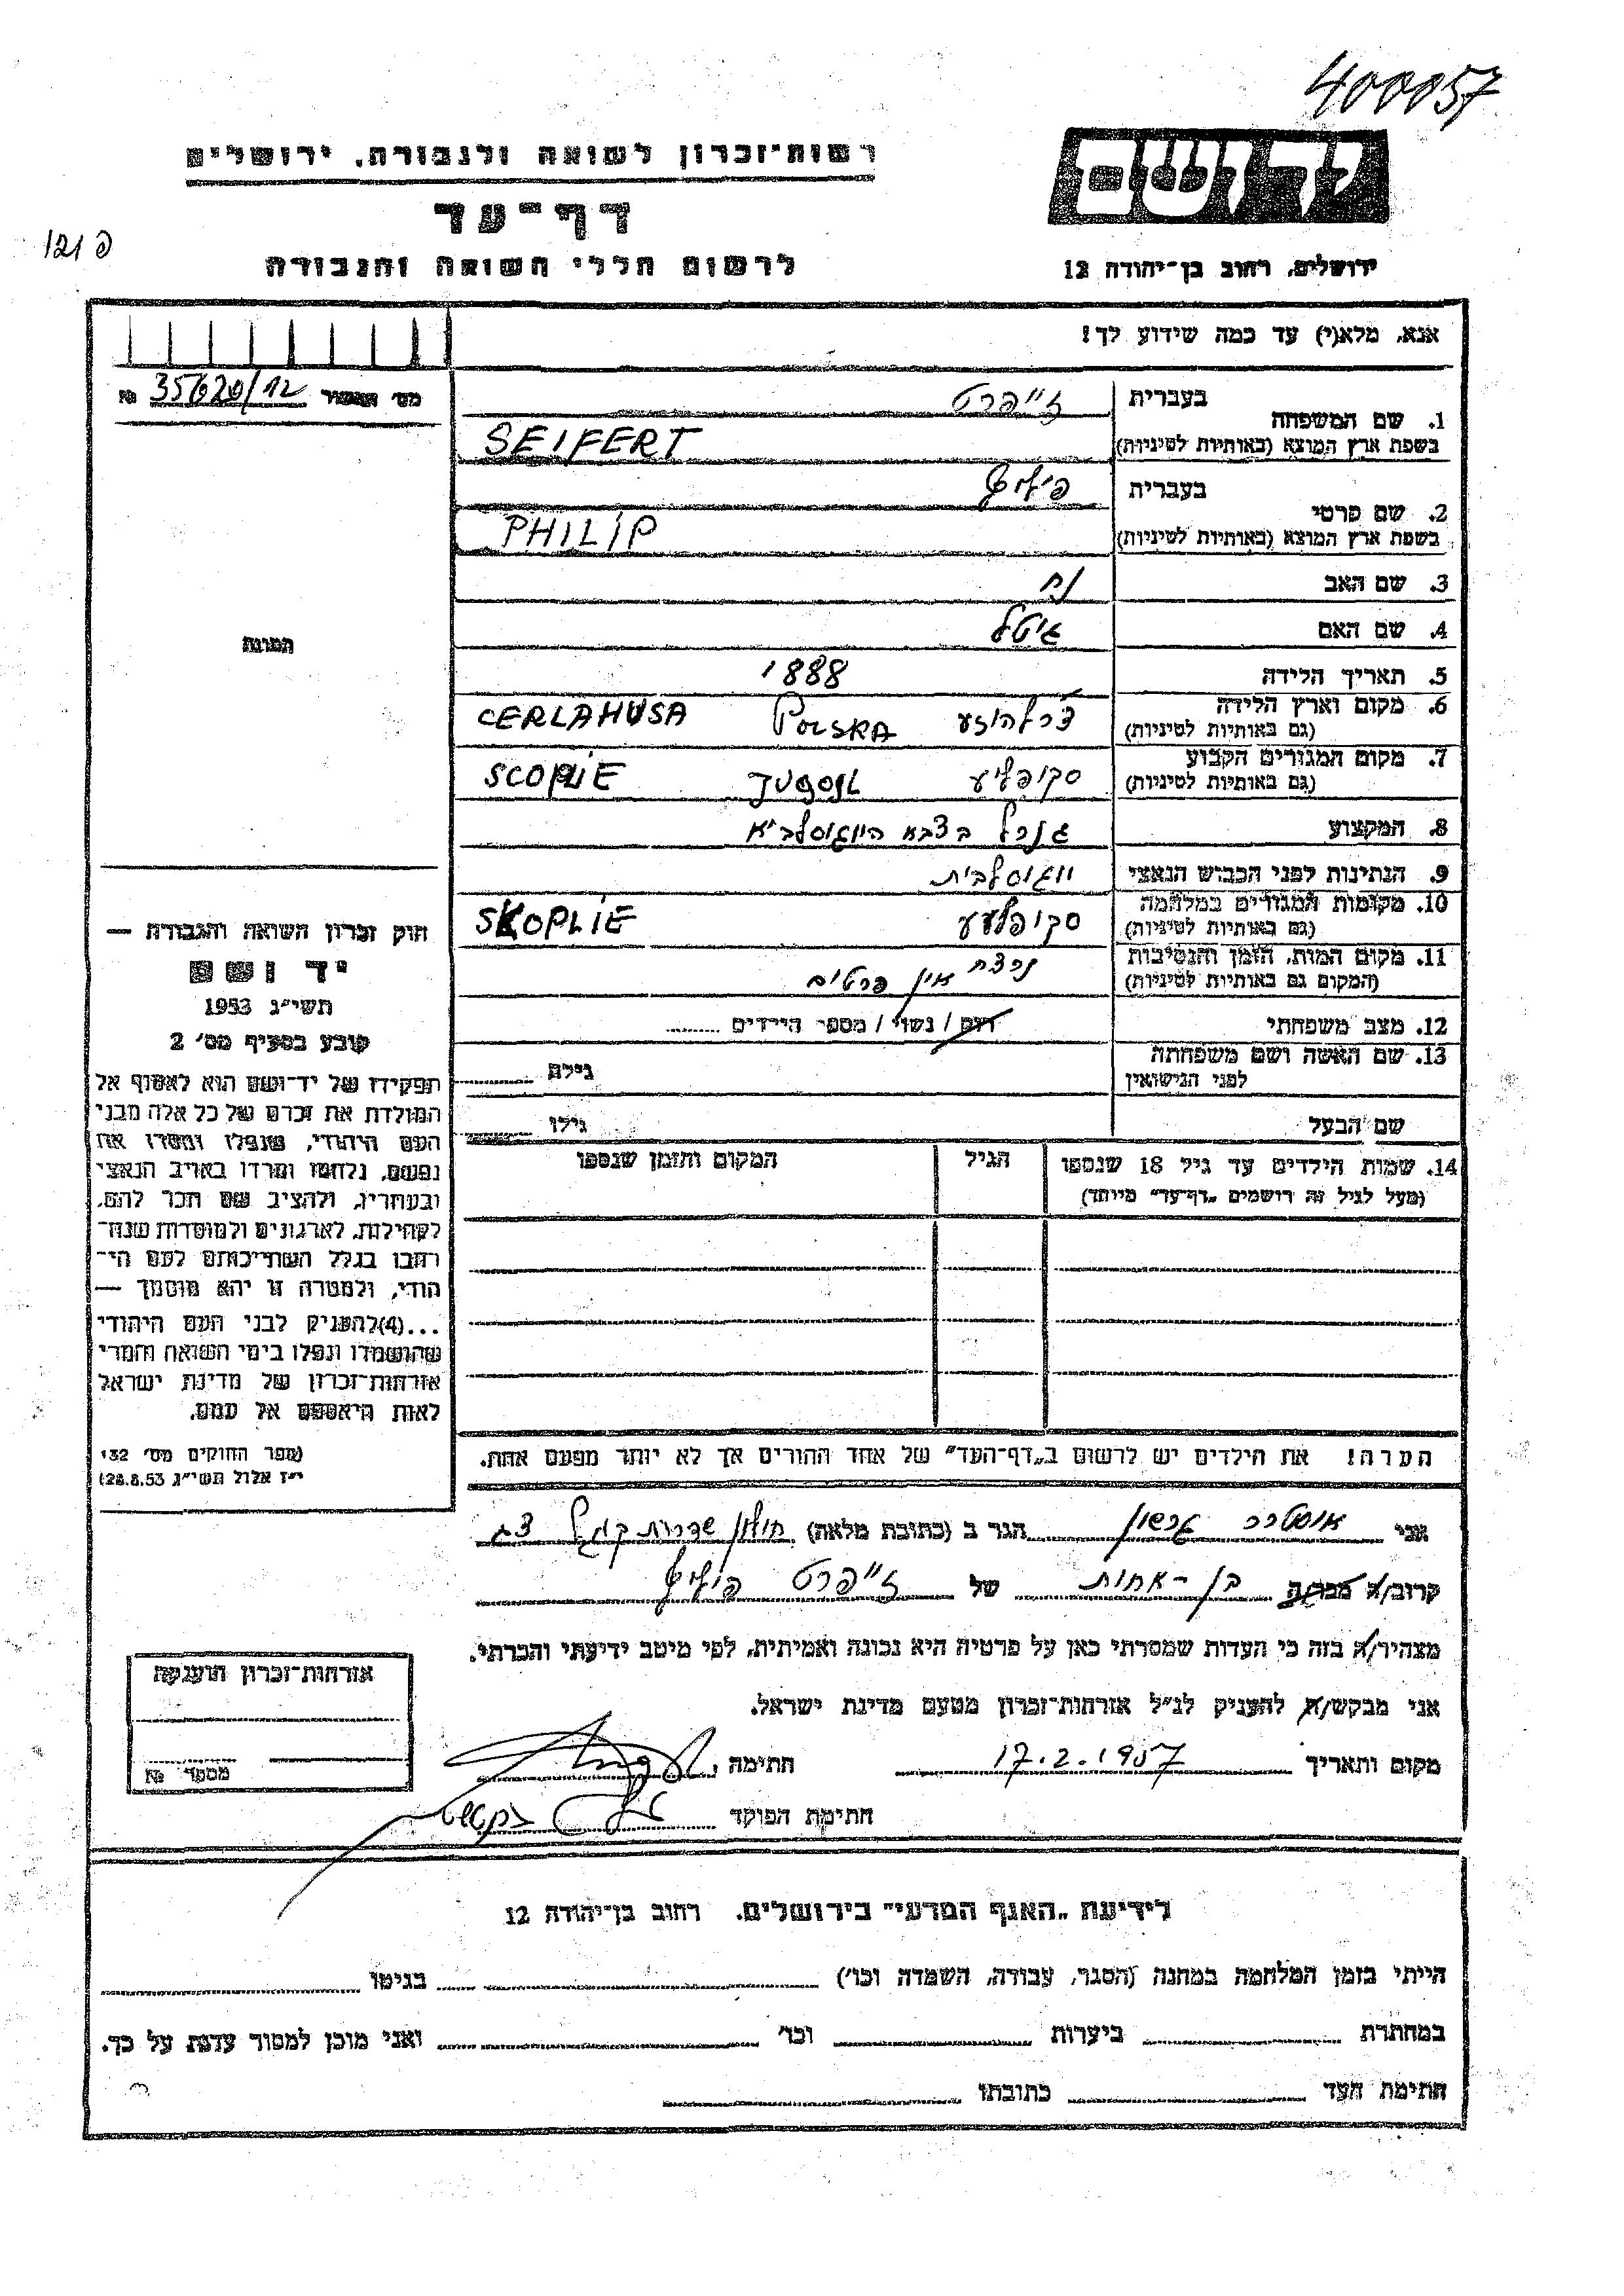 400057
יד ושם
רשות־זכרון לשואה ולגבורה, ירושלים
דף־עד
לרשום חללי השואה והגבורה
ירושלים, רחוב בן־יהודה 12
אנא, מלא(י) עד כמה שידוע לך!
35620/12 №
1. שם המשפחה בעברית זייפרט
בשפת ארץ המוצא (באותיות לטיניות) SEIFERT
2. שם פרטי בעברית פיליפ
בשפת ארץ המוצא (באותיות לטיניות) PHILIP
3. שם האב נח
4. שם האם גיטל
5. תאריך הלידה 1888
6. מקום וארץ הלידה צרלהוזע POLSKA CERLAHUSA
(גם באותיות לטיניות)
7. מקום המגורים הקבוע סקופליע JUGOSL SCOPLIE
(גם באותיות לטיניות)
8. המקצוע גנרל בצבא היוגוסלביא
9. הנתינות לפני הכבוש הנאצי יוגוסלבית
10. מקומות המגורים במלחמה SKOPLIE
(גם באותיות לטיניות)
11. מקום המות, הזמן והנסיבות נרצח אין פרטים
(המקום גם באותיות לטיניות)
12. מצב משפחתי רווק / נשוי / מספר הילדים
13. שם האשה ושם משפחתה
לפני הנישואין גילה
שם הבעל גילו
14. שמות הילדים עד גיל 18 שנספו הגיל המקום והזמן שנספו
(מעל לגיל זה רושמים „דף־עד” מיוחד)
תמונה
חוק זכרון השואה והגבורה —
יד ושם
תשי״ג 1953
קובע בסעיף מס׳ 2
תפקידו של יד־ושם הוא לאסוף אל
המולדת את זכרם של כל אלה מבני
העם היהודי, שנפלו ומסרו את
נפשם, נלחמו ומרדו באויב הנאצי
ובעוזריו, ולהציב שם וזכר להם,
לקהילות, לארגונים ולמוסדות שנח־
רבו בגלל השתייכותם לעם הי־
הודי, ולמטרה זו יהא מוסמך —
...(4)להעניק לבני העם היהודי
שהושמדו ונפלו בימי השואה והמרי
אזרחות־זכרון של מדינת ישראל
לאות היאספם אל עמם.
(ספר החוקים מס׳ 132
י״ז אלול תשי״ג 28.8.53)
הערה! את הילדים יש לרשום ב„דף־העד” של אחד ההורים אך לא יותר מפעם אחת.
אני גרשון הגר ב (כתובת מלאה) חולון שדרות קק״ל
קרוב/ה מכר/ה בן-אחות של זייפרט פיליפ
מצהיר/ה בזה כי העדות שמסרתי כאן על פרטיה היא נכונה ואמיתית, לפי מיטב ידיעתי והכרתי.
אני מבקש/ת להעניק לנ״ל אזרחות־זכרון מטעם מדינת ישראל.
מקום ותאריך 17.2.1957 חתימה
חתימת הפוקד
אזרחות־זכרון הוענקה
מספר №
לידיעת „האגף המדעי” בירושלים, רחוב בן־יהודה 12
הייתי בזמן המלחמה במחנה (הסגר, עבודה, השמדה וכו׳) בגיטו
במחתרת ביערות וכו׳ ואני מוכן למסור עדות על כך.
חתימת העד כתובתו